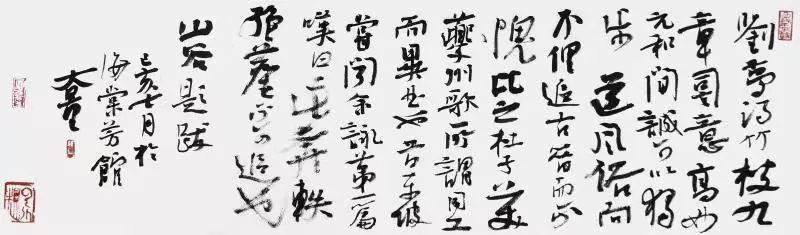 劉夢得竹枝九
章詞意高妙
元和間誠可以獨
步道風俗而
不俚追古昔而不
愧比之杜子美
夔州歌所謂同工
而異曲也昔東坡
嘗聞余詠第一篇
嘆曰此奔軼
絕塵不可追也
山谷題跋
己亥七月於
海棠芳館